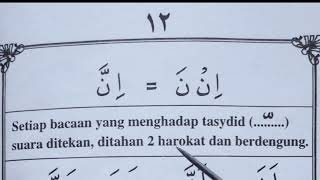 ١٢
اِنْ نَ = اِنَّ
Setiap bacaan yang menghadap tasydid (....ّ....)
suara ditekan, ditahan 2 harokat dan berdengung.